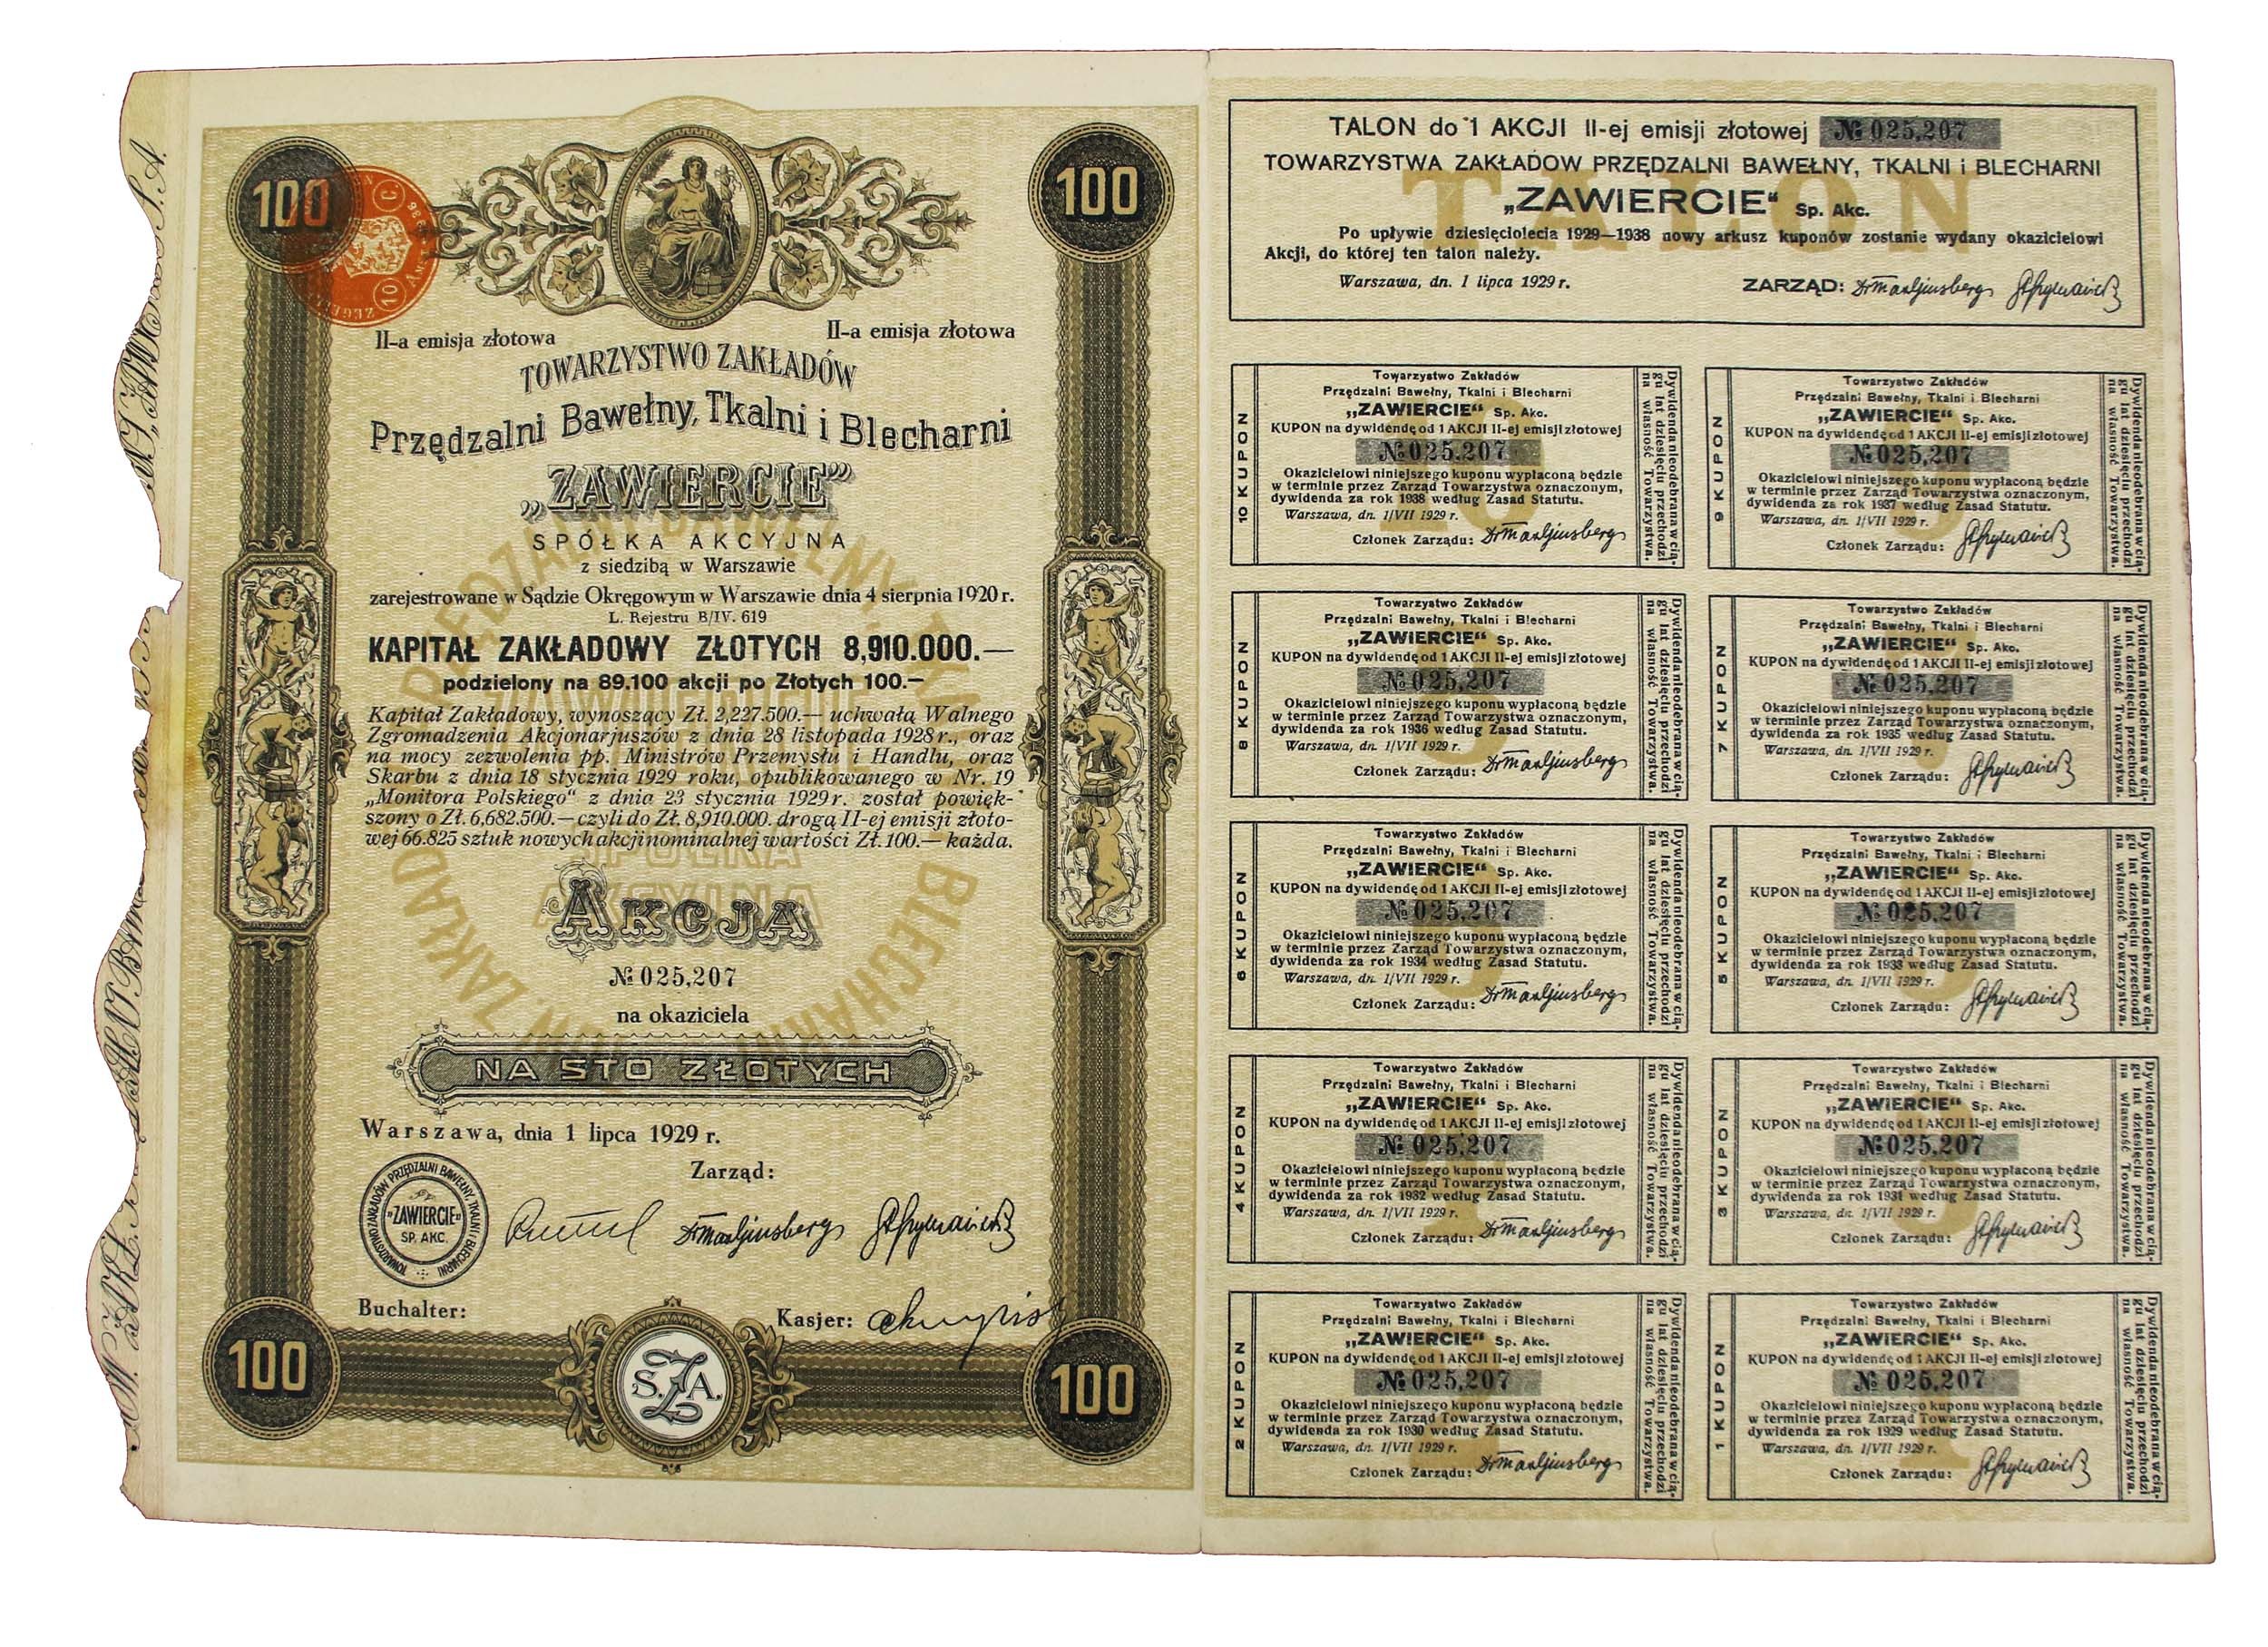 100
100
II-a emisja złotowa
II-a emisja złotowa
TOWARZYSTWO ZAKŁADÓW
Przędzalni Bawełny, Tkalni i Blecharni
„ZAWIERCIE”
SPÓŁKA AKCYJNA
z siedzibą w Warszawie
zarejestrowane w Sądzie Okręgowym w Warszawie dnia 4 sierpnia 1920 r.
L. Rejestru B/IV. 619
KAPITAŁ ZAKŁADOWY ZŁOTYCH 8,910.000.—
podzielony na 89.100 akcji po Złotych 100.—
Kapitał Zakładowy, wynoszący Zł. 2,227.500.— uchwałą Walnego
Zgromadzenia Akcjonarjuszów z dnia 28 listopada 1928 r., oraz
na mocy zezwolenia pp. Ministrów Przemysłu i Handlu, oraz
Skarbu z dnia 18 stycznia 1929 roku, opublikowanego w Nr. 19
„Monitora Polskiego“ z dnia 23 stycznia 1929 r. został powięk-
szony o Zł. 6,682.500.— czyli do Zł. 8,910.000. drogą II-ej emisji złoto-
wej 66.825 sztuk nowych akcji nominalnej wartości Zł. 100.— każda.
AKCJA
№ 025,207
na okaziciela
NA STO ZŁOTYCH
Warszawa, dnia 1 lipca 1929 r.
Zarząd:
TOWARZYSTWO ZAKŁADÓW PRZĘDZALNI BAWEŁNY, TKALNI I BLECHARNI
„ZAWIERCIE”
SP. AKC.
Buchalter:
Kasjer:
100
S.Z.A.
100
TALON
TALON do 1 AKCJI II-ej emisji złotowej № 025,207
TOWARZYSTWA ZAKŁADOW PRZĘDZALNI BAWEŁNY, TKALNI i BLECHARNI
„ZAWIERCIE“ Sp. Akc.
Po upływie dziesięciolecia 1929—1938 nowy arkusz kuponów zostanie wydany okazicielowi
Akcji, do której ten talon należy.
Warszawa, dn. 1 lipca 1929 r.
ZARZĄD:
10 KUPON
Towarzystwo Zakładów
Przędzalni Bawełny, Tkalni i Blecharni
„ZAWIERCIE“ Sp. Akc.
KUPON na dywidendę od 1 AKCJI II-ej emisji złotowej
№ 025,207
Okazicielowi niniejszego kuponu wypłaconą będzie
w terminie przez Zarząd Towarzystwa oznaczonym,
dywidenda za rok 1938 według Zasad Statutu.
Warszawa, dn. 1/VII 1929 r.
Członek Zarządu:
Dywidenda nieodebrana w cią-
gu lat dziesięciu przechodzi
na własność Towarzystwa.
9 KUPON
Towarzystwo Zakładów
Przędzalni Bawełny, Tkalni i Blecharni
„ZAWIERCIE“ Sp. Akc.
KUPON na dywidendę od 1 AKCJI II-ej emisji złotowej
№ 025,207
Okazicielowi niniejszego kuponu wypłaconą będzie
w terminie przez Zarząd Towarzystwa oznaczonym,
dywidenda za rok 1937 według Zasad Statutu.
Warszawa, dn. 1/VII 1929 r.
Członek Zarządu:
Dywidenda nieodebrana w cią-
gu lat dziesięciu przechodzi
na własność Towarzystwa.
8 KUPON
Towarzystwo Zakładów
Przędzalni Bawełny, Tkalni i Blecharni
„ZAWIERCIE“ Sp. Akc.
KUPON na dywidendę od 1 AKCJI II-ej emisji złotowej
№ 025,207
Okazicielowi niniejszego kuponu wypłaconą będzie
w terminie przez Zarząd Towarzystwa oznaczonym,
dywidenda za rok 1936 według Zasad Statutu.
Warszawa, dn. 1/VII 1929 r.
Członek Zarządu:
Dywidenda nieodebrana w cią-
gu lat dziesięciu przechodzi
na własność Towarzystwa.
7 KUPON
Towarzystwo Zakładów
Przędzalni Bawełny, Tkalni i Blecharni
„ZAWIERCIE“ Sp. Akc.
KUPON na dywidendę od 1 AKCJI II-ej emisji złotowej
№ 025,207
Okazicielowi niniejszego kuponu wypłaconą będzie
w terminie przez Zarząd Towarzystwa oznaczonym,
dywidenda za rok 1935 według Zasad Statutu.
Warszawa, dn. 1/VII 1929 r.
Członek Zarządu:
Dywidenda nieodebrana w cią-
gu lat dziesięciu przechodzi
na własność Towarzystwa.
6 KUPON
Towarzystwo Zakładów
Przędzalni Bawełny, Tkalni i Blecharni
„ZAWIERCIE“ Sp. Akc.
KUPON na dywidendę od 1 AKCJI II-ej emisji złotowej
№ 025,207
Okazicielowi niniejszego kuponu wypłaconą będzie
w terminie przez Zarząd Towarzystwa oznaczonym,
dywidenda za rok 1934 według Zasad Statutu.
Warszawa, dn. 1/VII 1929 r.
Członek Zarządu:
Dywidenda nieodebrana w cią-
gu lat dziesięciu przechodzi
na własność Towarzystwa.
5 KUPON
Towarzystwo Zakładów
Przędzalni Bawełny, Tkalni i Blecharni
„ZAWIERCIE“ Sp. Akc.
KUPON na dywidendę od 1 AKCJI II-ej emisji złotowej
№ 025,207
Okazicielowi niniejszego kuponu wypłaconą będzie
w terminie przez Zarząd Towarzystwa oznaczonym,
dywidenda za rok 1933 według Zasad Statutu.
Warszawa, dn. 1/VII 1929 r.
Członek Zarządu:
Dywidenda nieodebrana w cią-
gu lat dziesięciu przechodzi
na własność Towarzystwa.
4 KUPON
Towarzystwo Zakładów
Przędzalni Bawełny, Tkalni i Blecharni
„ZAWIERCIE“ Sp. Akc.
KUPON na dywidendę od 1 AKCJI II-ej emisji złotowej
№ 025,207
Okazicielowi niniejszego kuponu wypłaconą będzie
w terminie przez Zarząd Towarzystwa oznaczonym,
dywidenda za rok 1932 według Zasad Statutu.
Warszawa, dn. 1/VII 1929 r.
Członek Zarządu:
Dywidenda nieodebrana w cią-
gu lat dziesięciu przechodzi
na własność Towarzystwa.
3 KUPON
Towarzystwo Zakładów
Przędzalni Bawełny, Tkalni i Blecharni
„ZAWIERCIE“ Sp. Akc.
KUPON na dywidendę od 1 AKCJI II-ej emisji złotowej
№ 025,207
Okazicielowi niniejszego kuponu wypłaconą będzie
w terminie przez Zarząd Towarzystwa oznaczonym,
dywidenda za rok 1931 według Zasad Statutu.
Warszawa, dn. 1/VII 1929 r.
Członek Zarządu:
Dywidenda nieodebrana w cią-
gu lat dziesięciu przechodzi
na własność Towarzystwa.
2 KUPON
Towarzystwo Zakładów
Przędzalni Bawełny, Tkalni i Blecharni
„ZAWIERCIE“ Sp. Akc.
KUPON na dywidendę od 1 AKCJI II-ej emisji złotowej
№ 025,207
Okazicielowi niniejszego kuponu wypłaconą będzie
w terminie przez Zarząd Towarzystwa oznaczonym,
dywidenda za rok 1930 według Zasad Statutu.
Warszawa, dn. 1/VII 1929 r.
Członek Zarządu:
Dywidenda nieodebrana w cią-
gu lat dziesięciu przechodzi
na własność Towarzystwa.
1 KUPON
Towarzystwo Zakładów
Przędzalni Bawełny, Tkalni i Blecharni
„ZAWIERCIE“ Sp. Akc.
KUPON na dywidendę od 1 AKCJI II-ej emisji złotowej
№ 025,207
Okazicielowi niniejszego kuponu wypłaconą będzie
w terminie przez Zarząd Towarzystwa oznaczonym,
dywidenda za rok 1929 według Zasad Statutu.
Warszawa, dn. 1/VII 1929 r.
Członek Zarządu:
Dywidenda nieodebrana w cią-
gu lat dziesięciu przechodzi
na własność Towarzystwa.